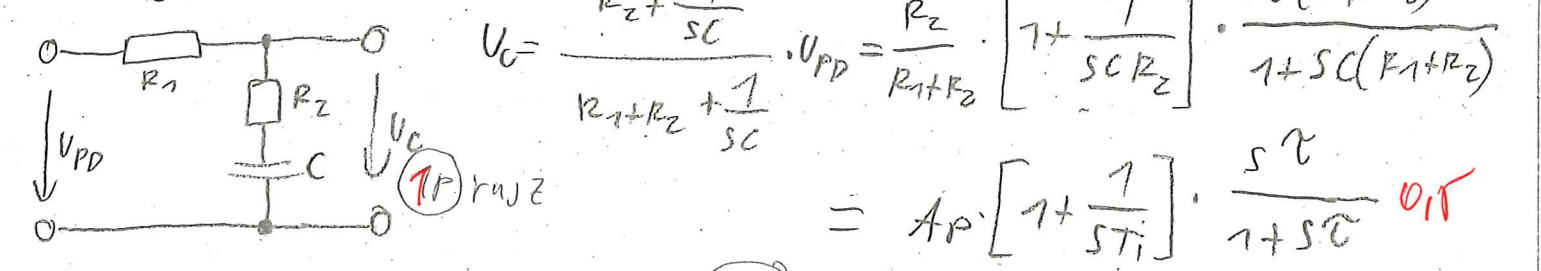 R1
R2
C
UPD
UC
1P
UC = (R2 + 1/SC) / (R1+R2 + 1/SC) · UPD = R2/(R1+R2) · [1 + 1/(SCR2)] · /(1+SC(R1+R2))
= Ap · [1 + 1/(STi)] · Sτ/(1+Sτ) 0,5